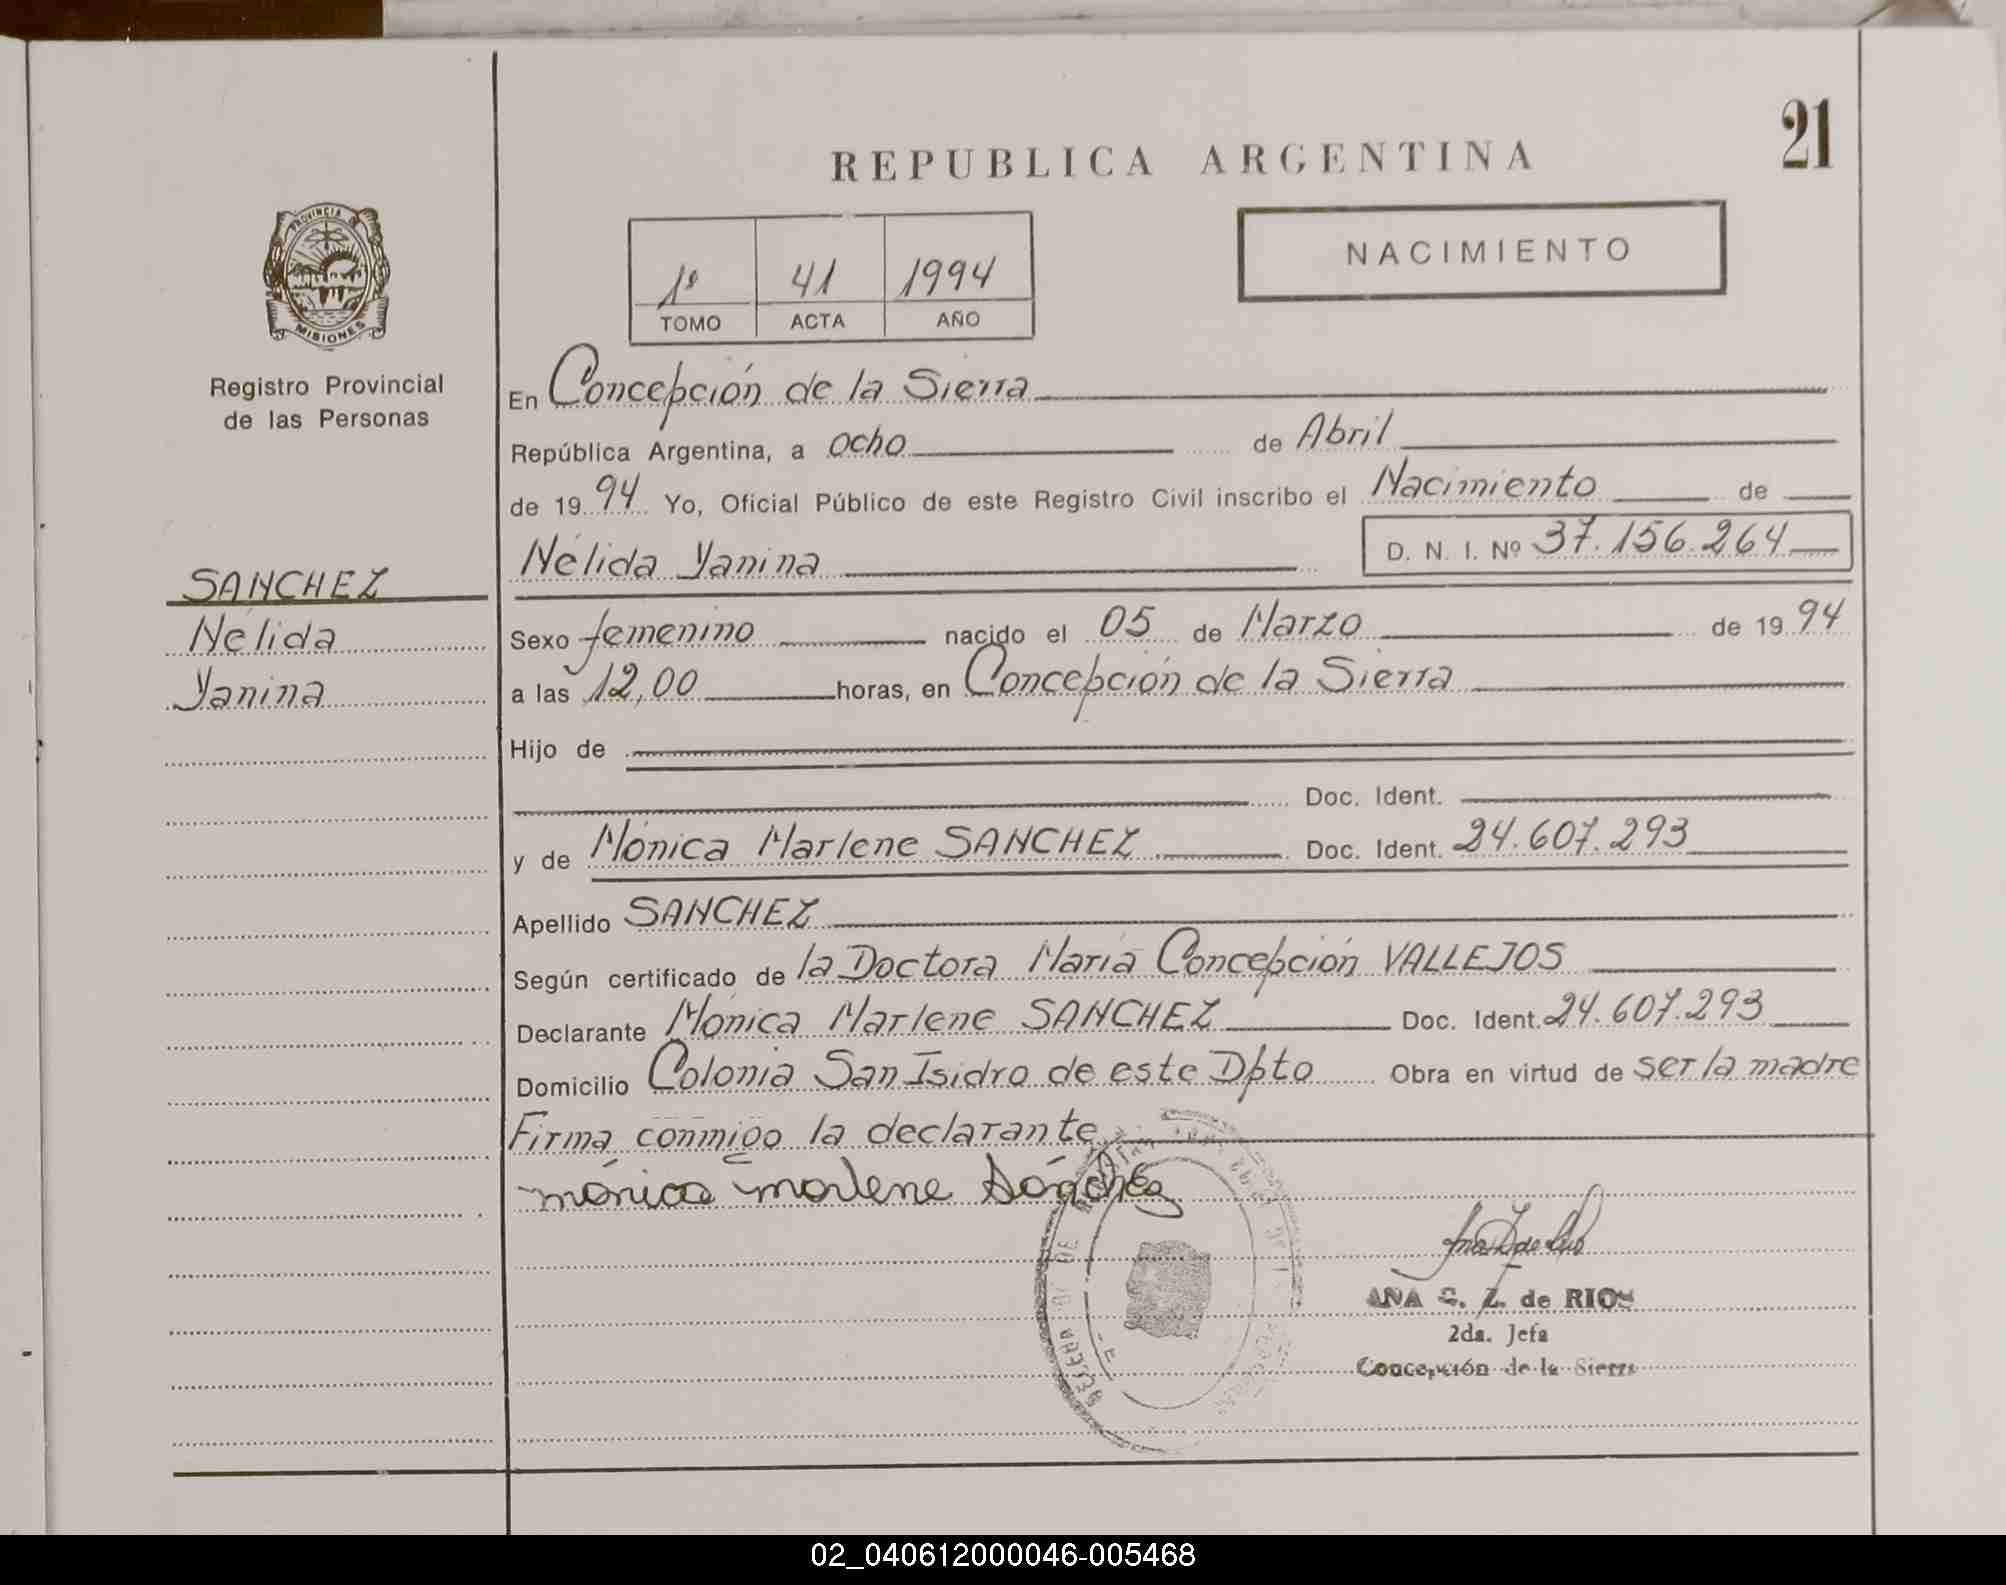 21
REPUBLICA ARGENTINA
PROVINCIA DE MISIONES
NACIMIENTO
1º 41 1994
TOMO ACTA AÑO
Registro Provincial
de las Personas
En Concepción de la Sierra
República Argentina, a ocho de Abril
de 1994 Yo, Oficial Público de este Registro Civil inscribo el Nacimiento de
Nélida Yanina D. N. I. Nº 37.156.264
SANCHEZ
Nélida
Yanina
Sexo femenino nacido el 05 de Marzo de 1994
a las 12,00 horas, en Concepción de la Sierra
Hijo de
Doc. Ident.
y de Mónica Marlene SANCHEZ Doc. Ident. 24.607.293
Apellido SANCHEZ
Según certificado de la Doctora María Concepción VALLEJOS
Declarante Mónica Marlene SANCHEZ Doc. Ident. 24.607.293
Domicilio Colonia San Isidro de este Dpto Obra en virtud de ser la madre
Firma conmigo la declarante
mónica marlene Sánchez
ANA G. Z. de RIOS
2da. Jefa
Concepción de la Sierra
02_040612000046-005468